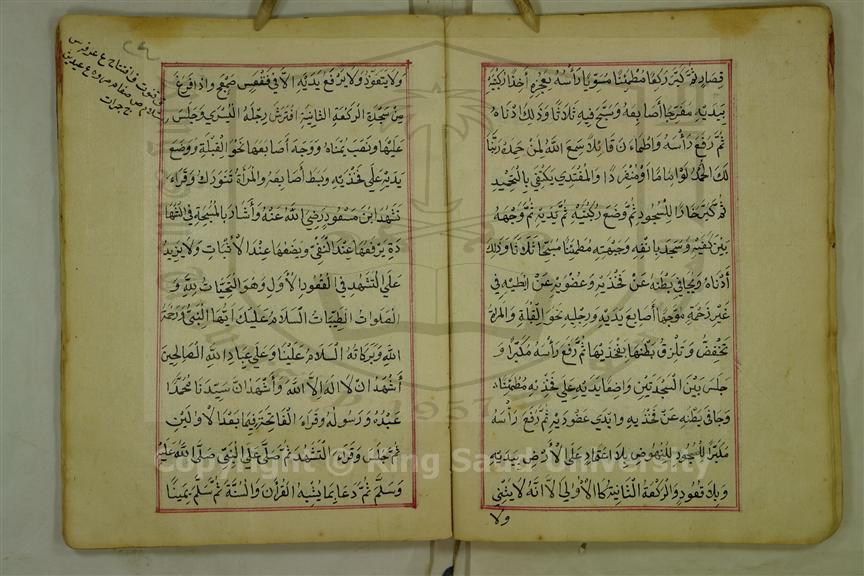 قصار ثم كبر راكعا مطمئنا مسويا رأسه بعجزه آخذا ركبتيه
بيديه مفرجا أصابعه وسبح فيه ثلاثا وذلك أدناه
ثم رفع رأسه واطمأن قائلا سمع الله لمن حمده ربنا
لك الحمد لو إماما أو منفردا والمقتدي يكتفي بالتحميد
ثم كبر خارا للسجود ثم وضع ركبتيه ثم يديه ثم وجهه
بين كفيه وسجد بأنفه وجبهته مطمئنا مسبحا ثلاثا وذلك
أدناه ويجافي بطنه عن فخذيه وعضديه عن إبطيه في
غير زحمة موجها أصابع يديه ورجليه نحو القبلة والمرأة
تخفض وتلزق بطنها بفخذيها ثم رفع رأسه مكبرا و
جلس بين السجدتين واضعا يديه على فخذيه مطمئنا
وجافى بطنه عن فخذيه وابدى عضديه ثم رفع رأسه
مكبرا للسجود للنهوض بلا اعتماد على الأرض بيديه
وبلا قعود والركعة الثانية كالأولى إلا أنه لا يثني
ولا
ولا يتعوذ ولا يرفع يديه الا في فقعس صمعج واذا فرغ
من سجدة الركعة الثانية افترش رجله اليسرى وجلس
عليها ونصب يمناه ووجه أصابعها نحو القبلة ووضع
يديه على فخذيه وبسط أصابعه والمرأة تتورك وقراء
تشهد ابن مسعود رضي الله عنه وأشار بالمسبحة في الشها
دة يرفعها عند النفي ويضعها عند الاثبات ولا يزيد
على التشهد في القعود الأول وهو التحيات لله و
الصلوات الطيبات السلام عليك أيها النبي ورحمة
الله وبركاته السلام علينا وعلى عباد الله الصالحين
أشهد ان لا اله الا الله وأشهد ان سيدنا محمدا
عبده ورسوله وقراء الفاتحة فيما بعد الأوليين
ثم جلس وقراء التشهد ثم صلى على النبي صلى الله عليه
وسلم ثم دعا بما يشبه القرآن والسنة ثم سلم يمينا
Copyright © King Saud University
1957